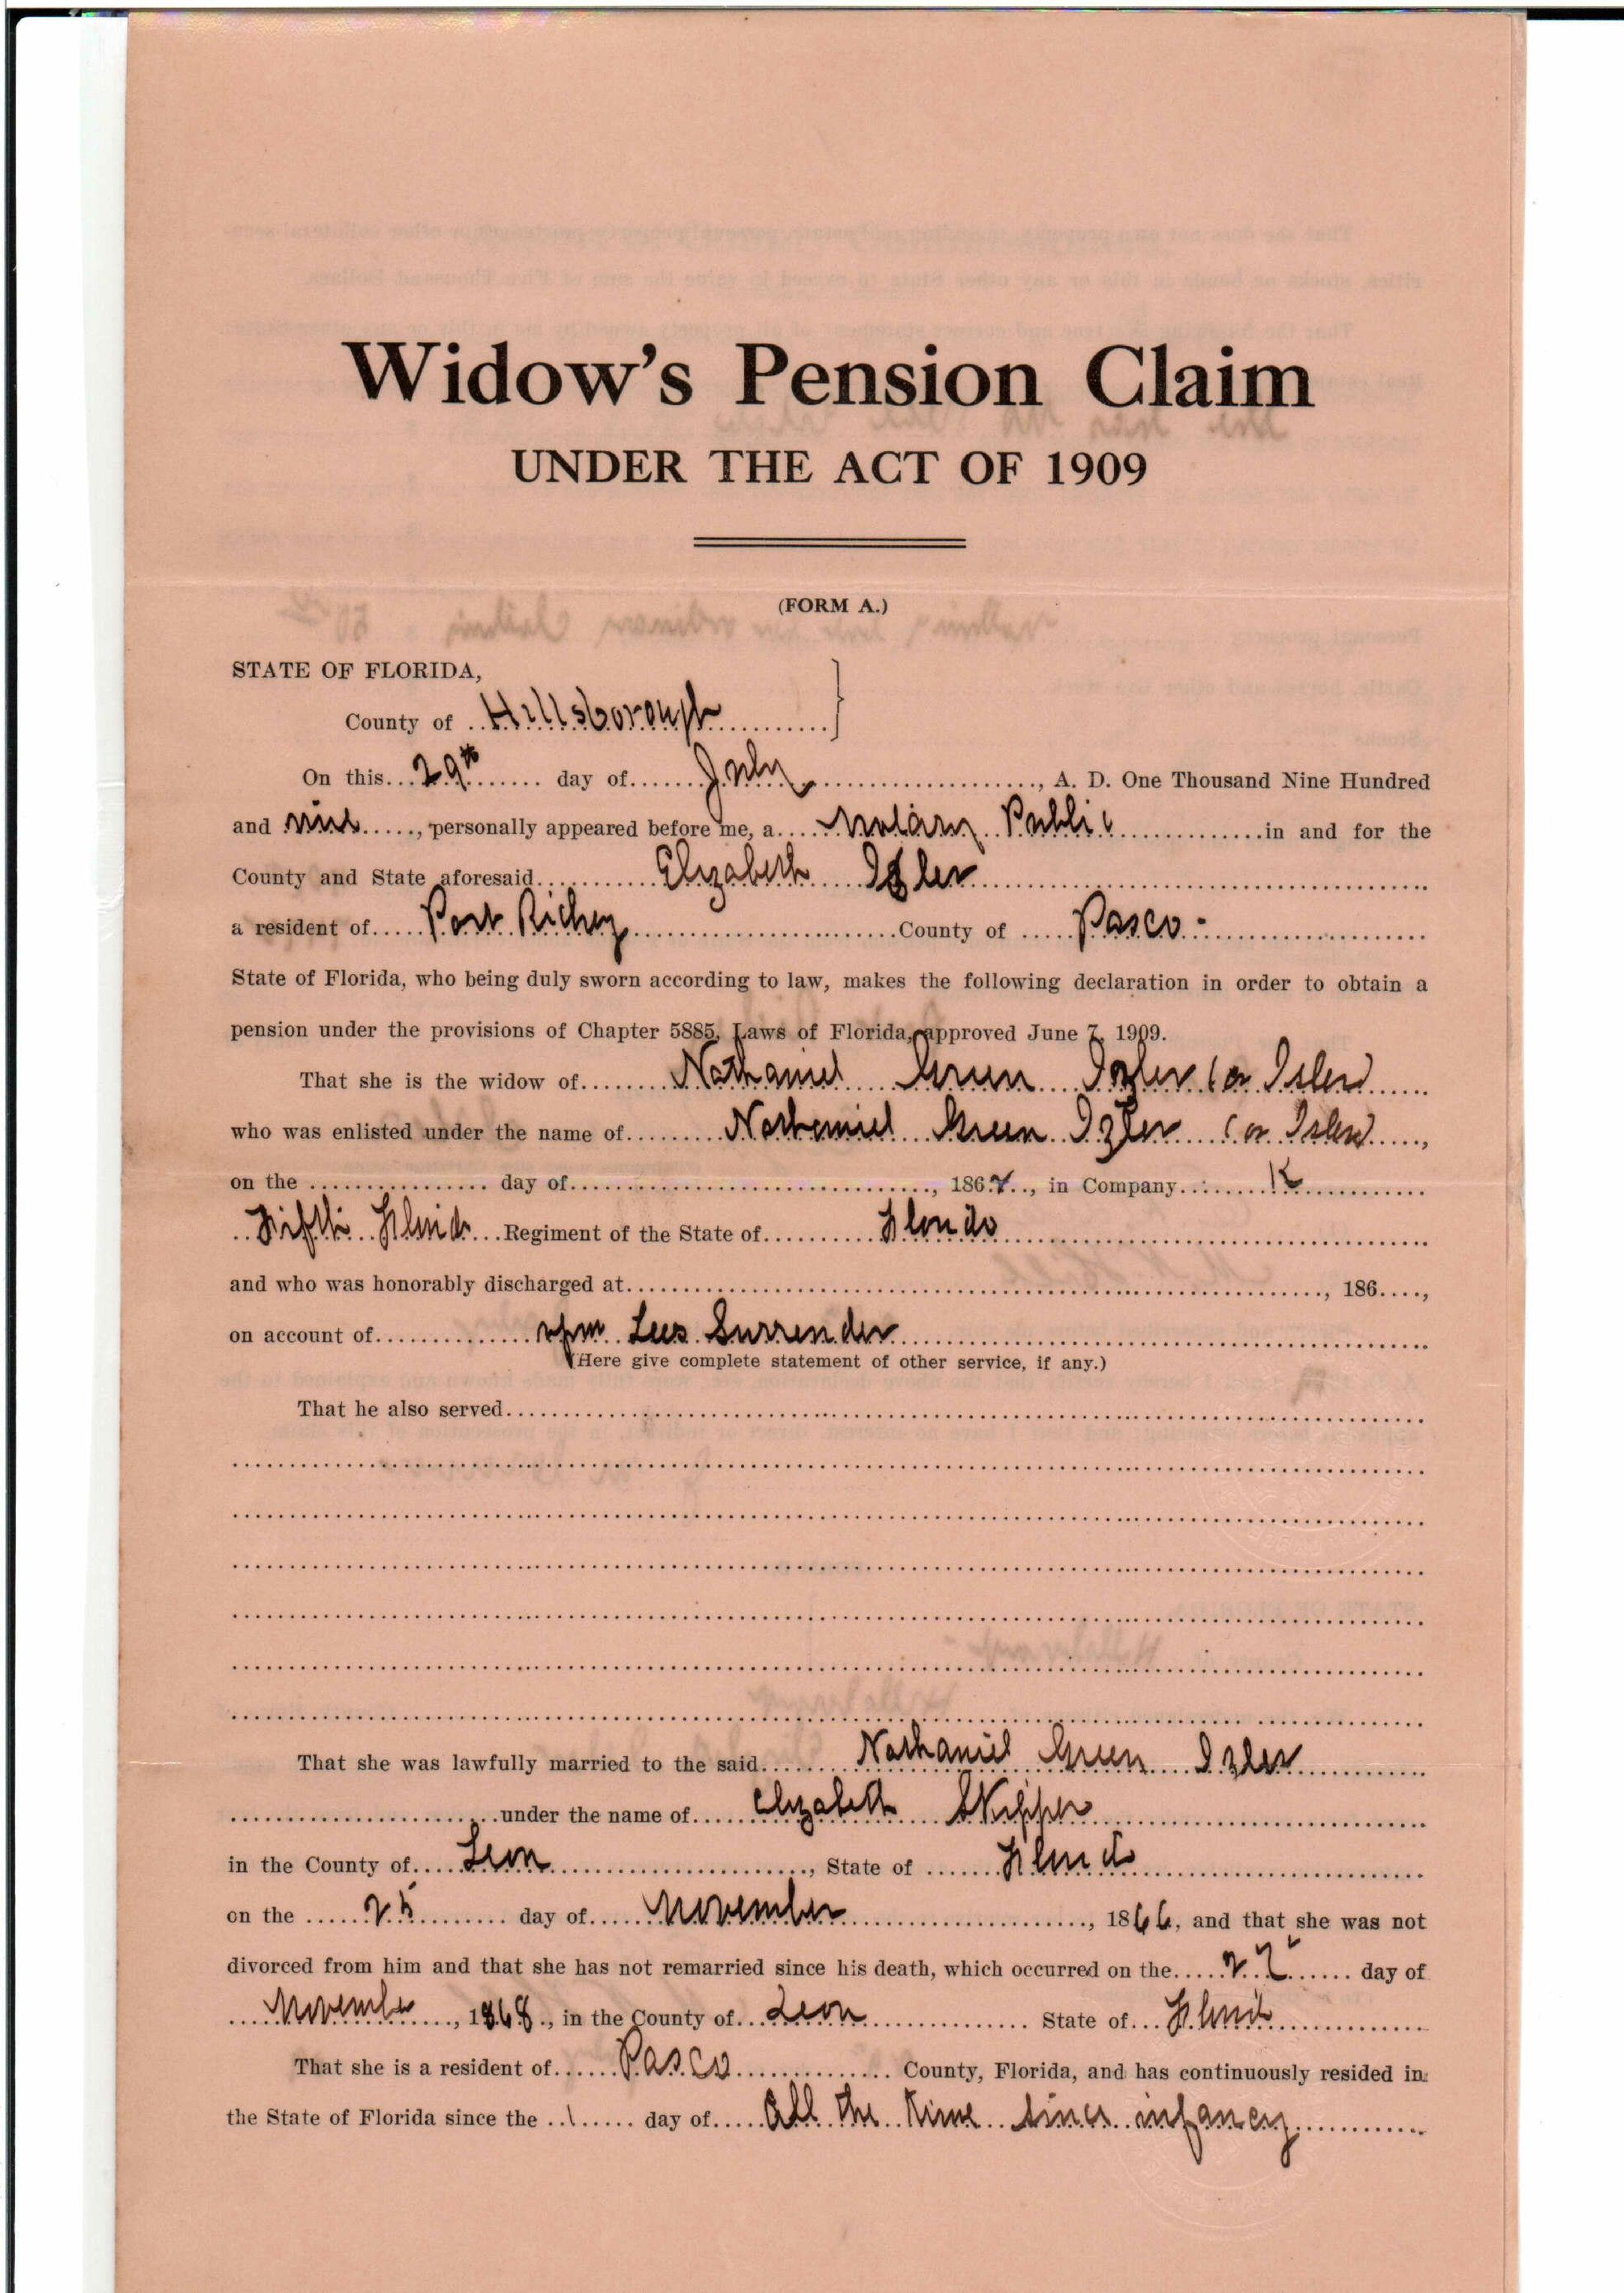 Widow's Pension Claim
UNDER THE ACT OF 1909
(FORM A.)
STATE OF FLORIDA,
County of Hillsborough
On this 29th day of July, A. D. One Thousand Nine Hundred
and nine, personally appeared before me, a Notary Public in and for the
County and State aforesaid Elizabeth Izler
a resident of Port Richey County of Pasco
State of Florida, who being duly sworn according to law, makes the following declaration in order to obtain a
pension under the provisions of Chapter 5885, Laws of Florida, approved June 7, 1909.
That she is the widow of Nathaniel Green Izler (or Isler)
who was enlisted under the name of Nathaniel Green Izler (or Isler),
on the day of, 1862, in Company K
Fifth Florida Regiment of the State of Florida
and who was honorably discharged at, 186,
on account of upon Lees Surrender
(Here give complete statement of other service, if any.)
That he also served
That she was lawfully married to the said Nathaniel Green Izler
under the name of Elizabeth Skipper
in the County of Leon, State of Florida
on the 25 day of November, 1866, and that she was not
divorced from him and that she has not remarried since his death, which occurred on the day of
November, 1868, in the County of Leon State of Florida
That she is a resident of Pasco County, Florida, and has continuously resided in
the State of Florida since the day of All the time since infancy